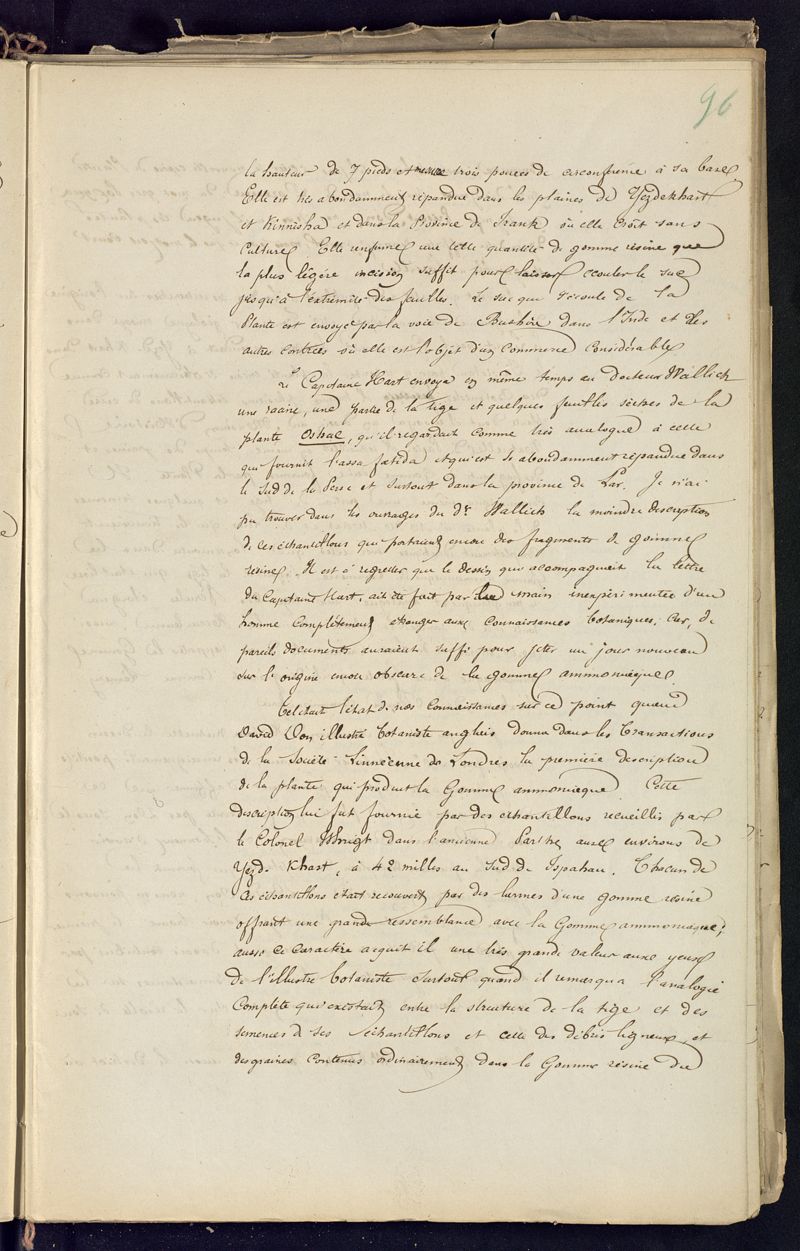 96
la hauteur de 7 pieds et mesure trois pouces de circonférence à sa base
Elle est très abondamment répandue dans les plaines de Yezdekhart
et Kinnisha et dans la Province de Irank où elle croît sans
culture. Elle renferme une telle quantité de gomme résine que
la plus légère incision suffit pour laisser écouler le suc
jusqu'à l'extrémité des feuilles. Le suc qui s'écoule de la
Plante est envoyé par la voie de Bushire dans l'Inde et les
autres contrées où elle est l'objet d'un commerce considérable
Le Capitaine Hart envoya en même temps au docteur Wallich
une racine, une partie de la tige et quelques feuilles sèches de la
plante Oshac, qu'il regardait comme très analogue à celle
qui fournit l'assa fœtida et qui est si abondamment répandue dans
le sud de la Perse et surtout dans la province de Lar. Je n'ai
pu trouver dans les ouvrages du Dr Wallich la moindre description
de ces échantillons qui portaient encore des fragments de gomme
résine. Il est à regretter que le dessin qui accompagnait la lettre
du Capitaine Hart, ait été fait par la main inexpérimentée d'un
homme complètement étranger aux connaissances botaniques, car, de
pareils documents auraient suffi pour jeter un jour nouveau
sur l'origine encore obscure de la gomme ammoniaque.
Tel était l'état de nos connaissances sur ce point quand
David Don illustre botaniste anglais donna dans les Transactions
de la Société Linnéenne de Londres la première description
de la plante qui produit la Gomme ammoniaque. Cette
description lui fut fournie par des échantillons recueillis par
le Colonel Whrigt dans l'ancienne Parthe aux environs de
Yezd-Khast, à 42 milles au Sud de Ispahan. Chacun de
ces échantillons était recouvert par des larmes d'une gomme résine
offrant une grande ressemblance avec la Gomme ammoniaque;
aussi ce caractère acquit il une très grande valeur aux yeux
de l'illustre botaniste surtout quand il remarqua l'analogie
complète qui existait entre la structure de la tige et des
semences de ses échantillons et celle des débris ligneux et
des graines contenus ordinairement dans la Gomme résine du